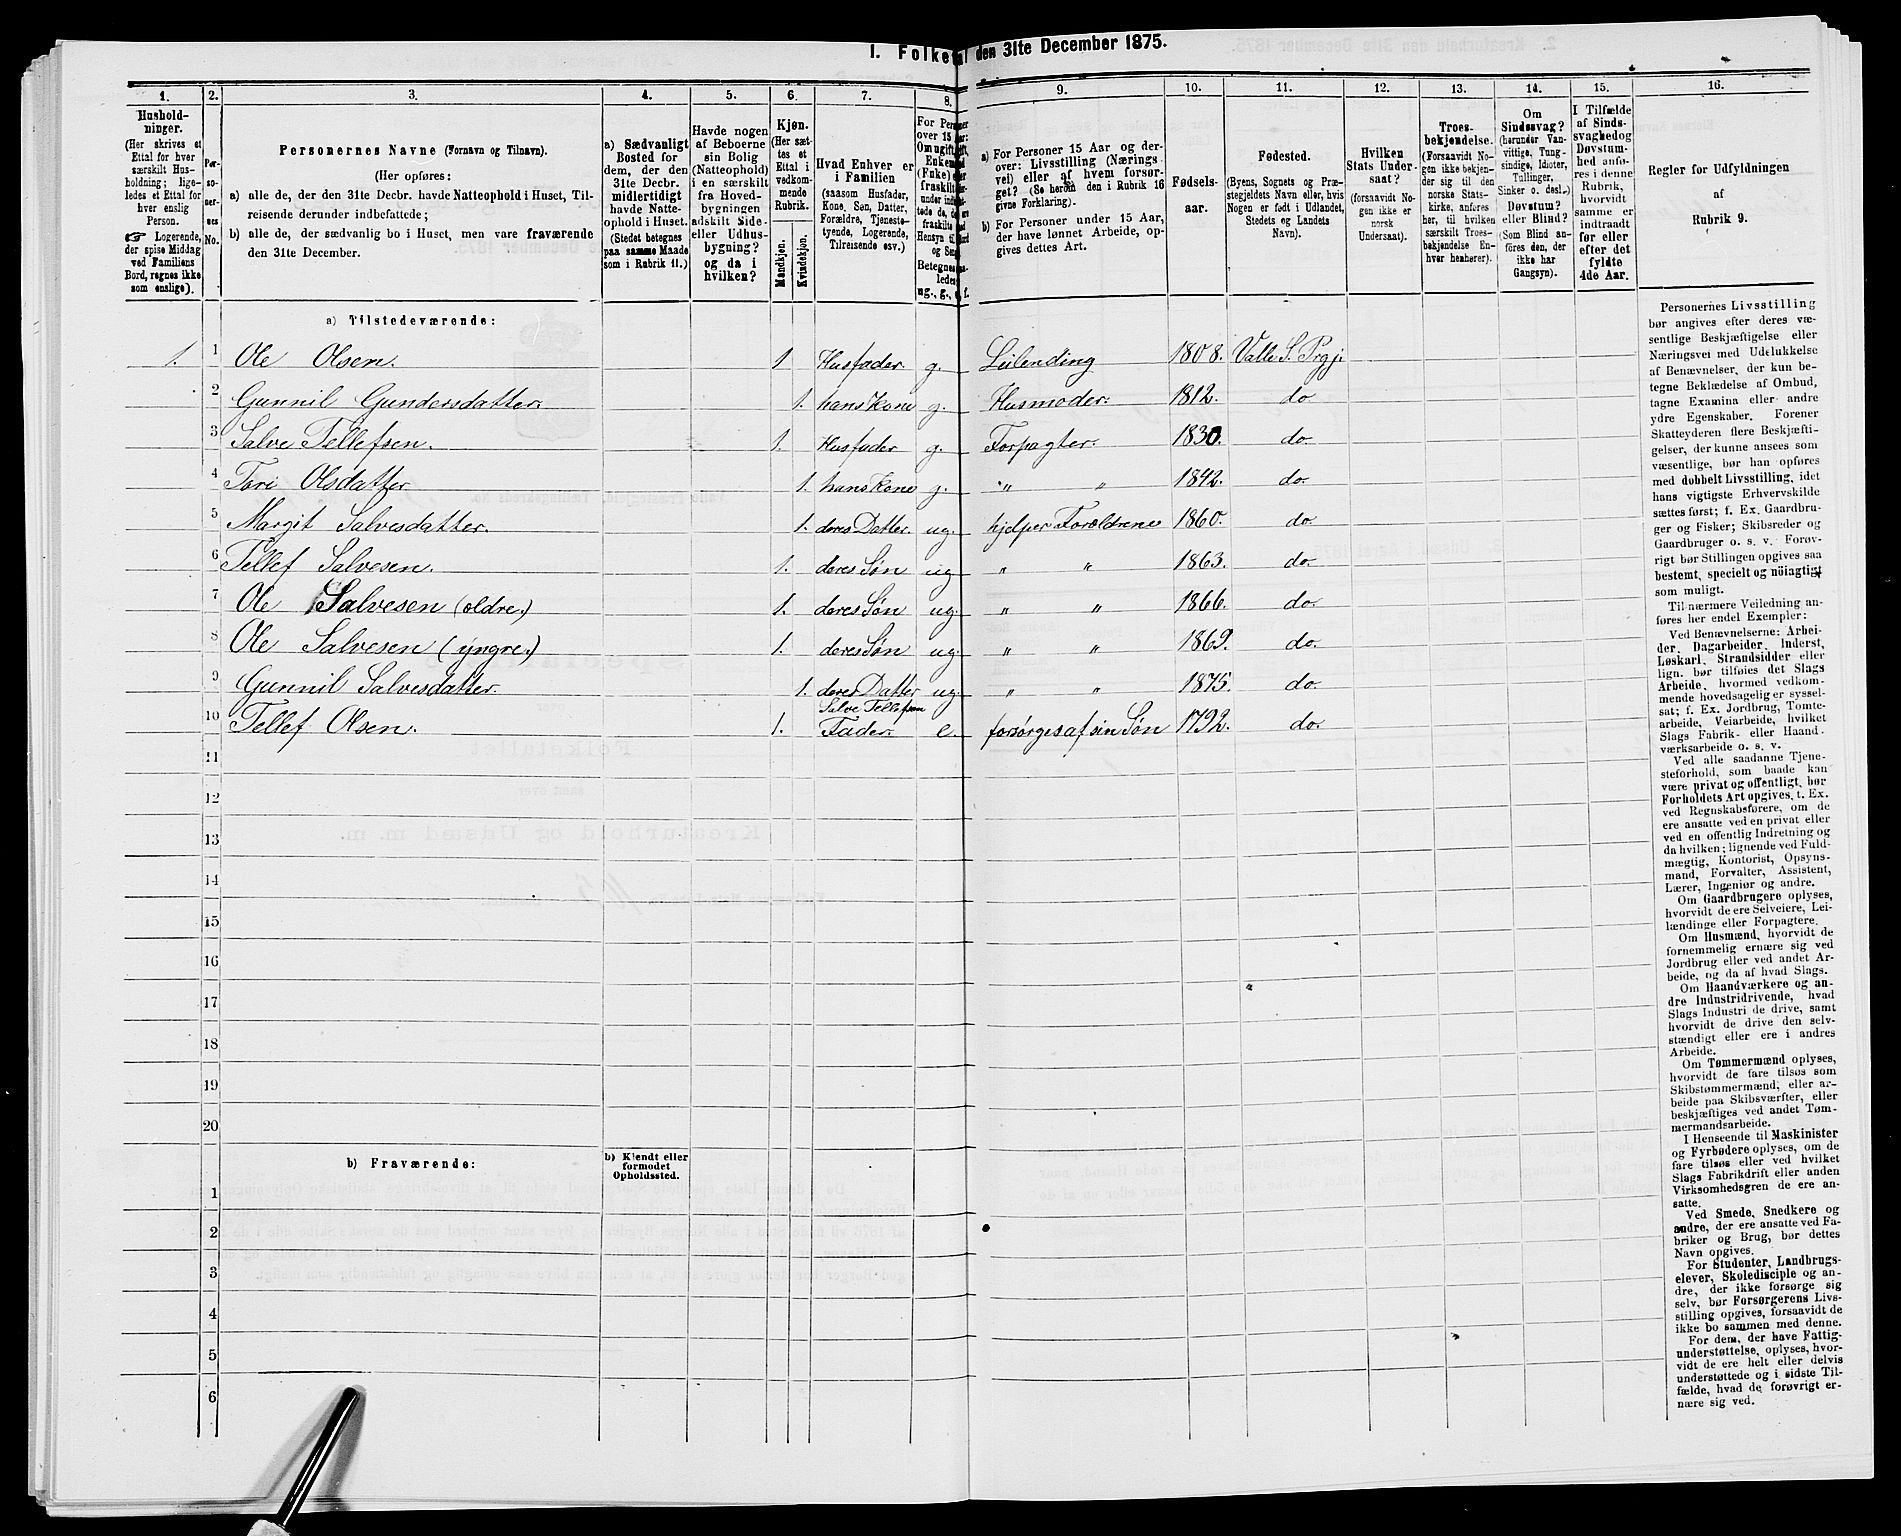 1. Folketal den 31te December 1875.
1. 2. 3. 4. 5. 6. 7. 8. 9. 10. 11. 12. 13. 14. 15. 16.
Hushold-
ninger.
(Her skrives et
Ettal for hver
særskilt Hus-
holdning; lige-
ledes et Ettal for
hver enslig
Person.
☞ Logerende,
der spise Middag
ved Familiens
Bord, regnes ikke
som enslige).
Per-
so-
ner-
nes
No.
Personernes Navne (Fornavn og Tilnavn).
(Her opføres:
a) alle de, der den 31te Decbr. havde Natteophold i Huset, Til-
reisende derunder indbefattede;
b) alle de, der sædvanlig bo i Huset, men vare fraværende
den 31te December.
a) Sædvanligt
Bosted for
dem, der den
31te Decbr.
midlertidigt
havde Natte-
ophold i Huset.
(Stedet betegnes
paa samme Maade
som i Rubrik 11.)
Havde nogen
af Beboerne
sin Bolig
(Natteophold)
i en særskilt
fra Hoved-
bygningen
adskilt Side-
eller Udhus-
bygning?
og da i
hvilken?
Kjøn.
(Her sæt-
tes et
Ettal i
vedkom-
mende
Rubrik.
Mandkjøn.
Kvindekjøn.
Hvad Enhver er
i Familien
(saasom Husfader,
Kone, Søn, Datter,
Forældre, Tjeneste-
tyende, Logerende,
Tilreisende osv.)
For Personer
over 15 Aar:
Om ugift,
Enkemand
(Enke) eller
fraskilt
a) For Personer 15 Aar og der-
over: Livsstilling (Nærings
vei) eller af hvem forsør-
get? (Se herom den i Rubrik 16
givne Forklaring).
b) For Personer under 15 Aar,
der have lønnet Arbeide, op-
gives dettes Art.
Fødsels-
aar.
Fødested.
(Byens, Sognets og Præ-
stegjeldets Navn eller, hvis
Nogen er født i Udlandet,
Stedets og Landets
Navn).
Hvilken
Stats Under-
saat?
(forsaavidt No-
gen ikke er
norsk
Undersaat).
Troes-
bekjendelse.
(Forsaavidt No-
gen ikke bekjen-
der sig til den
norske Stats-
kirke, anføres
her, til hvilken
særskilt Troes-
bekjendelse En-
hver henhører).
Om
Sindssvag?
(herunder Van-
vittige, Tung-
sindige, Idioter,
Tullinger,
Sinker o. desl.)
Døvstum?
eller Blind?
(Som Blind an-
føres den, der
ikke har
Gangsyn).
I Tilfælde
af Sinds-
svaghed og
Døvstum-
hed anfø-
res i denne
Rubrik,
hvorvidt
samme er
indtraadt
før eller
efter det
fyldte
4de Aar.
Regler for Udfyldningen
af
Rubrik 9.
a) Tilstedeværende:
1. 1 Ole Olsen. 1 Husfader. g. Leilending 1808. Valle S. Prgj.
2 Gunnil Gundersdatter. 1. hans Kone g. Husmoder. 1812. do
3 Salve Tellefsen. 1. Husfader g. Forpagter. 1830. do.
4 Tori Olsdatter 1. hans Kone g. " " 1842. do.
5 Margit Salvesdatter. 1. deres Datter. ug. hjelper Forældrene 1860. do.
6 Tellef Salvesen. 1. deres Søn ug " " 1863. do.
7 Ole Salvesen (ældre.) 1. deres Søn ug. " " 1866. do.
8 Ole Salvesen (yngre.) 1. deres Søn ug. " " 1869. do.
9 Gunnil Salvesdatter. 1. deres Datter ug. " " 1875. do.
10 Tellef Olsen. 1. Salve Tellefsen Fader. e. forsørges af sin Søn 1792. do.
11
12
13
14
15
16
17
18
19
20
b) Fraværende:
b) Kjendt eller
formodet
Opholdssted.
1
2
3
4
5
6
Personernes Livsstilling
bør angives efter deres væ-
sentlige Beskjæftigelse eller
Næringsvei med Udelukkelse
af Benævnelser, der kun be-
tegne Beklædelse af Ombud,
tagne Examina eller andre
ydre Egenskaber. Forener
Skatteyderen flere Beskjæfti-
gelser, der kunne ansees som
væsentlige, bør han opføres
med dobbelt Livsstilling, idet
hans vigtigste Erhvervskilde
sættes først; f. Ex. Gaardbru-
ger og Fisker; Skibsreder og
Gaardbruger o. s. v. Forøv-
rigt bør Stillingen opgives saa
bestemt, specielt og nöiagtigt
som muligt.
Til nærmere Veiledning an-
føres her endel Exempler:
Ved Benævnelserne: Arbei-
der, Dagarbeider, Inderst,
Løskarl, Strandsidder eller
lign. bør tilføies det Slags
Arbeide, hvormed vedkom-
mende hovedsagelig er syssel-
sat; f. Ex. Jordbrug, Tomte-
arbeide, Veiarbeide, hvilket
Slags Fabrik- eller Haand-
værksarbeide o. s. v.
Ved alle saadanne Tjene-
steforhold, som baade kan
være privat og offentligt, bør
Forholdets Art opgives, t. Ex.
ved Regnskabsførere, om de
ere ansatte ved en privat eller
ved en offentlig Indretning og
da hvilken; lignende ved Fuld-
mægtig, Kontorist, Opsyns-
mand, Forvalter, Assistent,
Lærer, Ingeniør og andre.
Om Gaardbrugere oplyses,
hvorvidt de ere Selveiere, Lei-
lændinge eller Forpagtere.
Om Husmænd, hvorvidt de
fornemmelig ernære sig ved
Jordbrug eller ved andet Ar-
beide, og da af hvad Slags.
Om Haandværkere og an-
dre Industridrivende, hvad
Slags Industri de drive, samt
hvorvidt de drive den selv-
stændigt eller ere i andres
Arbeide.
Om Tømmermænd oplyses,
hvorvidt de fare tilsøs som
Skibstømmermænd, eller ar-
beide paa Skibsværfter, eller
beskjæftiges ved andet Tøm-
mermandsarbeide.
I Henseende til Maskinister
og Fyrbødere oplyses, om de
fare tilsøs eller ved hvilket
Slags Fabrikdrift eller anden
Virksomhedsgren de ere an-
satte.
Ved Smede, Snedkere og
andre, der ere ansatte ved Fa-
briker og Brug, bør dettes
Navn opgives.
For Studenter, Landbrugs-
elever, Skoledisciple og an-
dre, der ikke forsørge sig
selv, bør Forsørgerens Livs-
stilling opgives, forsaavidt de
ikke bo sammen med denne.
For dem, der have Fattig-
understøttelse, oplyses, hvor-
vidt de ere helt eller delvis
understøttede og i sidste Til-
fælde, hvad de forøvrigt er-
nære sig ved.